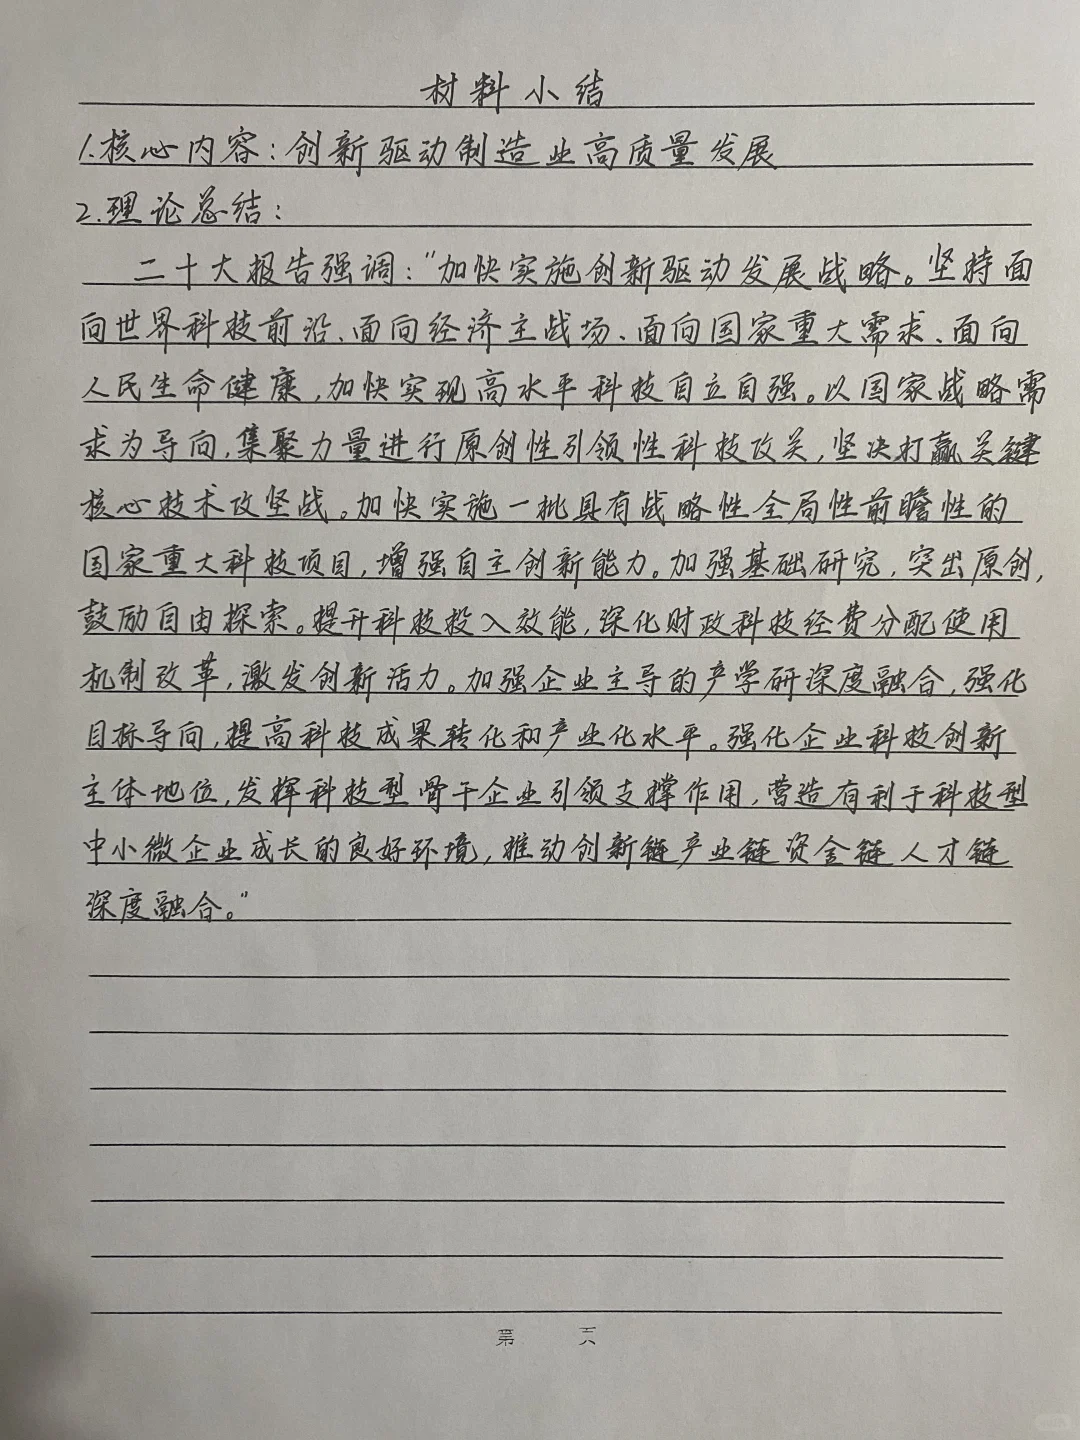 材料小结
1.核心内容：创新驱动制造业高质量发展
2.理论总结：
二十大报告强调：“加快实施创新驱动发展战略。坚持面
向世界科技前沿、面向经济主战场、面向国家重大需求、面向
人民生命健康，加快实现高水平科技自立自强。以国家战略需
求为导向，集聚力量进行原创性引领性科技攻关，坚决打赢关键
核心技术攻坚战。加快实施一批具有战略性全局性前瞻性的
国家重大科技项目，增强自主创新能力。加强基础研究，突出原创，
鼓励自由探索。提升科技投入效能，深化财政科技经费分配使用
机制改革，激发创新活力。加强企业主导的产学研深度融合，强化
目标导向，提高科技成果转化和产业化水平。强化企业科技创新
主体地位，发挥科技型骨干企业引领支撑作用，营造有利于科技型
中小微企业成长的良好环境，推动创新链产业链资金链人才链
深度融合。”
第 页